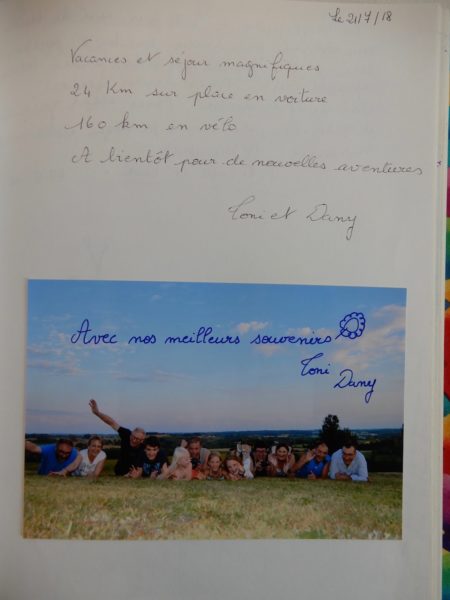 le 21/7/18
Vacances et séjour magnifiques
24 Km sur place en voiture
160 km en vélo
A bientôt pour de nouvelles aventures
Toni et Dany
Avec nos meilleurs souvenirs
Toni
Dany